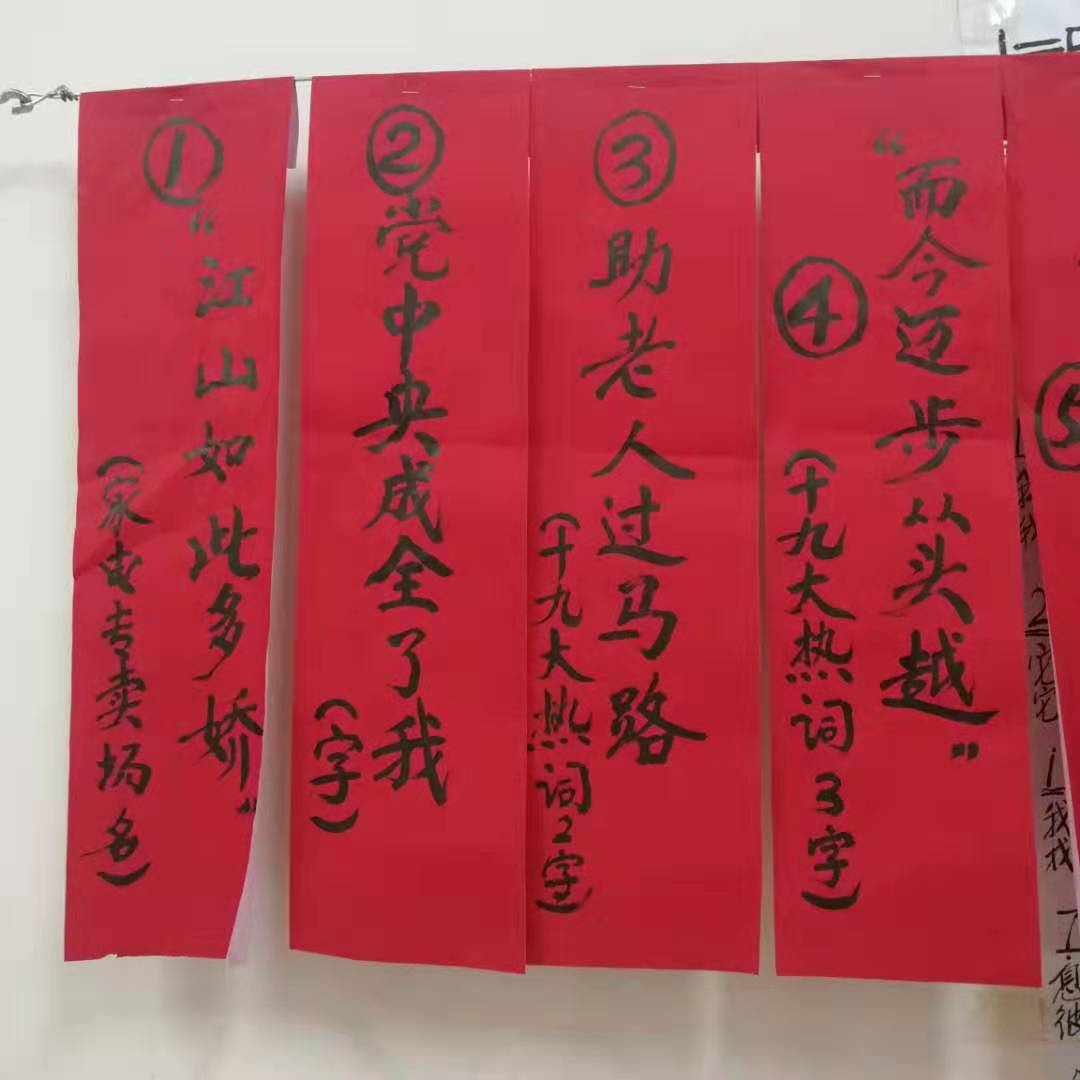 ①
“江山如此多娇”
（家电专卖场名）
②
党中央成全了我
（字）
③
助老人过马路
（十九大热词2字）
④
“而今迈步从头越”
（十九大热词3字）
⑤
2
宅
我找
7.